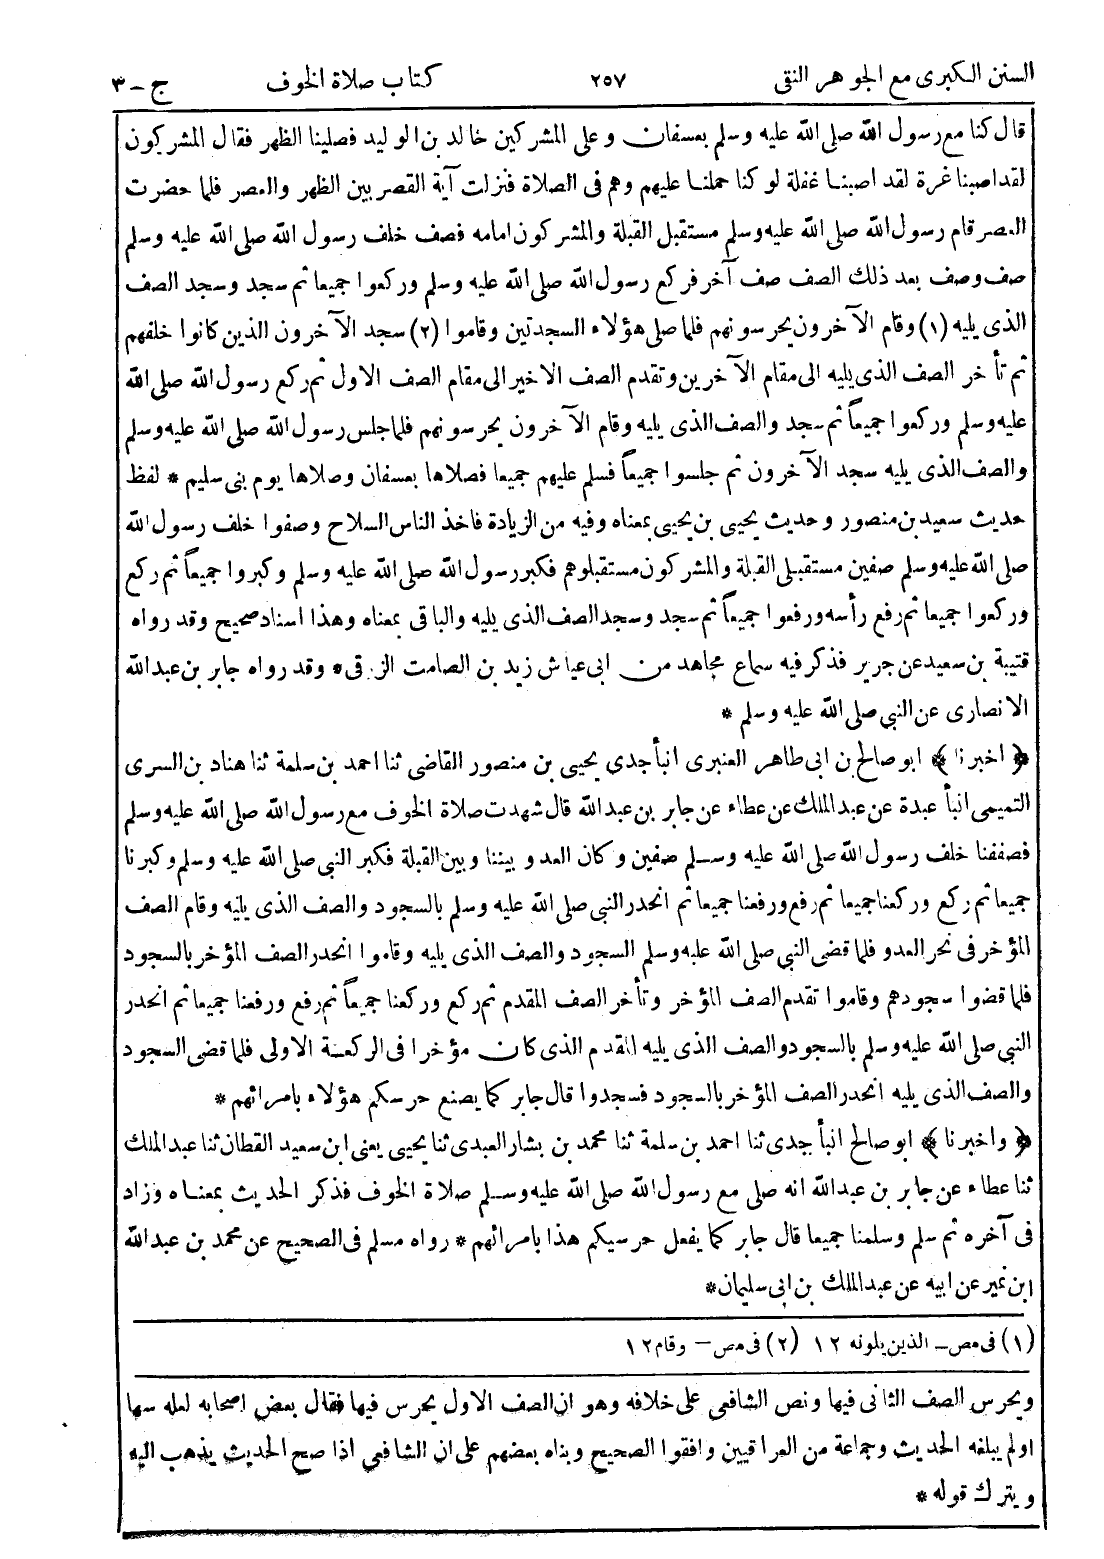 السنن الكبرى مع الجوهر النقى ٢٥٧ كتاب صلاة الخوف ج - ٣
قال كنا مع رسول الله صلى الله عليه وسلم بعسفان وعلى المشركين خالد بن الوليد فصلينا الظهر فقال المشركون
لقد اصبنا غرة لقد اصبنا غفلة لو كنا حملنا عليهم وهم فى الصلاة فنزلت آية القصر بين الظهر والعصر فلما حضرت
العصر قام رسول الله صلى الله عليه وسلم مستقبل القبلة والمشركون امامه فصف خلف رسول الله صلى الله عليه وسلم
صف وصف بعد ذلك الصف صف آخر فركع رسول الله صلى الله عليه وسلم وركعوا جميعا ثم سجد وسجد الصف
الذى يليه (١) وقام الآخرون يحرسونهم فلما صلى هؤلاء السجدتين وقاموا (٢) سجد الآخرون الذين كانوا خلفهم
ثم تأخر الصف الذى يليه الى مقام الآخرين وتقدم الصف الاخير الى مقام الصف الاول ثم ركع رسول الله صلى الله
عليه وسلم وركعوا جميعاً ثم سجد والصف الذى يليه وقام الآخرون يحرسونهم فلما جلس رسول الله صلى الله عليه وسلم
والصف الذى يليه سجد الآخرون ثم جلسوا جميعاً فسلم عليهم جميعا فصلاها بعسفان وصلاها يوم بنى سليم * لفظ
حديث سعيد بن منصور وحديث يحيى بن يحيى بمعناه وفيه من الزيادة فاخذ الناس السلاح وصفوا خلف رسول الله
صلى الله عليه وسلم صفين مستقبلى القبلة والمشركون مستقبلوهم فكبر رسول الله صلى الله عليه وسلم وكبروا جميعاً ثم ركع
وركعوا جميعا ثم رفع رأسه ورفعوا جميعاً ثم سجد وسجد الصف الذى يليه والباقى بمعناه وهذا اسناد صحيح وقد رواه
قتيبة بن سعيد عن جرير فذكر فيه سماع مجاهد من ابى عياش زيد بن الصامت الزرقى * وقد رواه جابر بن عبد الله
الانصارى عن النبي صلى الله عليه وسلم *
﴿ اخبرنا ﴾ ابو صالح بن ابى طاهر العنبرى انبأ جدى يحيى بن منصور القاضى ثنا احمد بن سلمة ثنا هناد بن السرى
التميمى انبأ عبدة عن عبد الملك عن عطاء عن جابر بن عبد الله قال شهدت صلاة الخوف مع رسول الله صلى الله عليه وسلم
فصففنا خلف رسول الله صلى الله عليه وسلم صفين وكان العدو بيننا وبين القبلة فكبر النبي صلى الله عليه وسلم وكبرنا
جميعا ثم ركع وركعنا جميعا ثم رفع ورفعنا جميعا ثم انحدر النبي صلى الله عليه وسلم بالسجود والصف الذى يليه وقام الصف
المؤخر فى نحر العدو فلما قضى النبي صلى الله عليه وسلم السجود والصف الذى يليه وقاموا انحدر الصف المؤخر بالسجود
فلما قضوا سجودهم وقاموا تقدم الصف المؤخر وتأخر الصف المقدم ثم ركع وركعنا جميعاً ثم رفع ورفعنا جميعا ثم انحدر
النبي صلى الله عليه وسلم بالسجود والصف الذى يليه المقدم الذى كان مؤخرا فى الركعة الاولى فلما قضى السجود
والصف الذى يليه انحدر الصف المؤخر بالسجود فسجدوا قال جابر كما يصنع حرسكم هؤلاء بامرائهم *
﴿ واخبرنا ﴾ ابو صالح انبأ جدى ثنا احمد بن سلمة ثنا محمد بن بشار العبدى ثنا يحيى يعنى ابن سعيد القطان ثنا عبد الملك
ثنا عطاء عن جابر بن عبد الله انه صلى مع رسول الله صلى الله عليه وسلم صلاة الخوف فذكر الحديث بمعناه وزاد
فى آخره ثم سلم وسلمنا جميعا قال جابر كما يفعل حرسيكم هذا بامرائهم * رواه مسلم فى الصحيح عن محمد بن عبد الله
ابن نمير عن ابيه عن عبد الملك بن ابى سليمان *
(١) فى مص - الذين يلونه ١٢ (٢) فى مص - وقام ١٢
ويحرس الصف الثانى فيها ونص الشافعى على خلافه وهو ان الصف الاول يحرس فيها فقال بعض اصحابه لعله سها
اولم يبلغه الحديث وجماعة من العراقيين وافقوا الصحيح وبناه بعضهم على ان الشافعى اذا صح الحديث يذهب اليه
ويترك قوله *